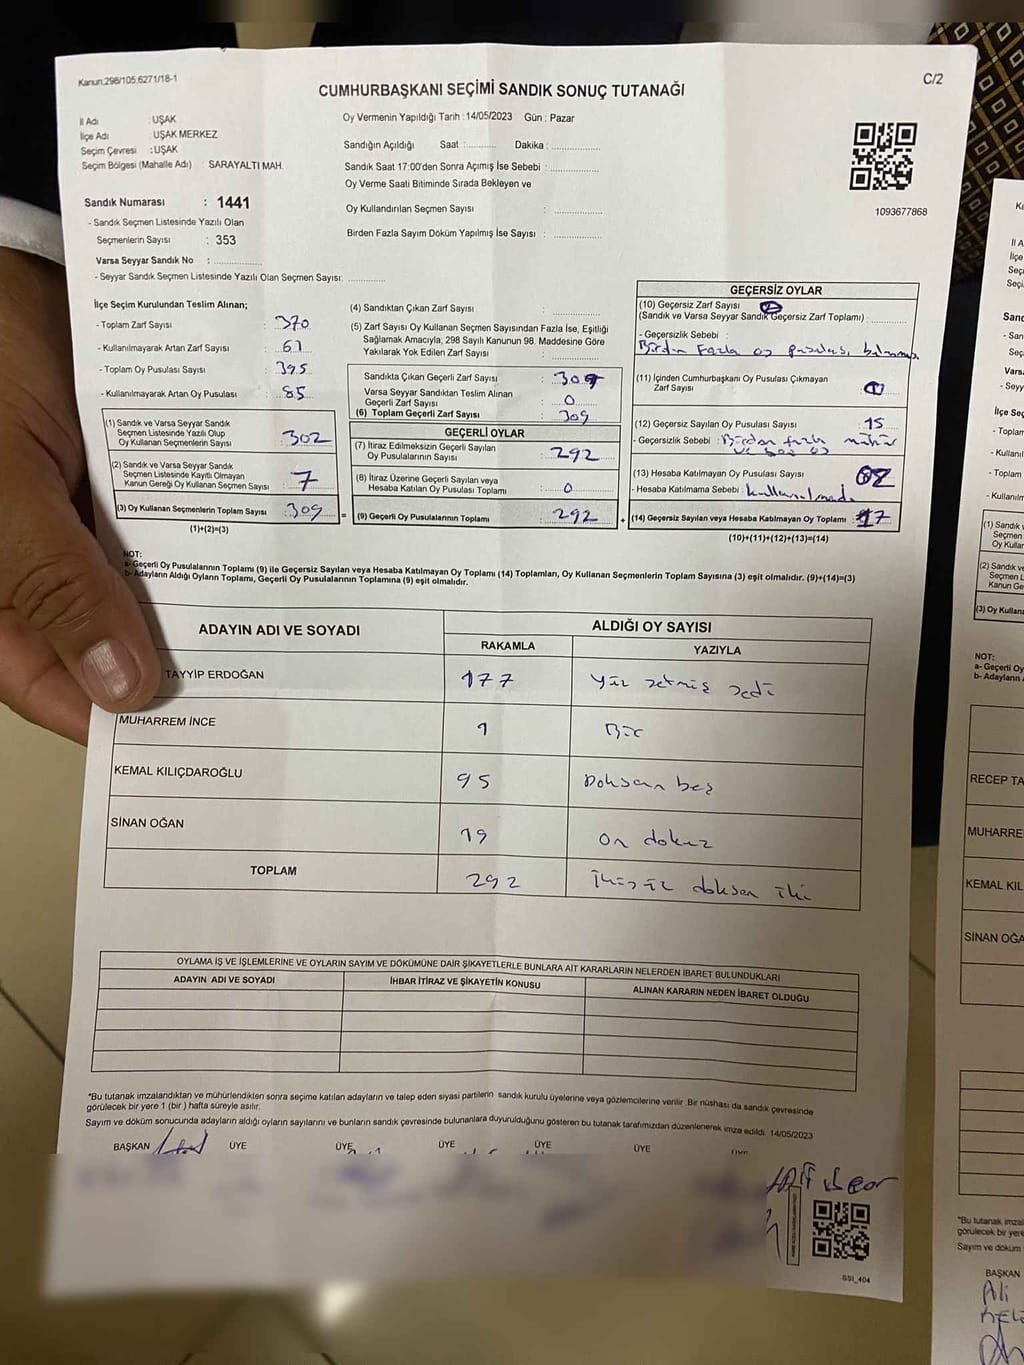 Kanun:298/105:6271/18-1
C/2
CUMHURBAŞKANI SEÇİMİ SANDIK SONUÇ TUTANAĞI
İl Adı : UŞAK
İlçe Adı : UŞAK MERKEZ
Seçim Çevresi : UŞAK
Seçim Bölgesi (Mahalle Adı) : SARAYALTI MAH.
Oy Vermenin Yapıldığı Tarih : 14/05/2023 Gün : Pazar
Sandığın Açıldığı Saat :.......... Dakika : ................
Sandık Saat 17:00'den Sonra Açımış İse Sebebi : ................
Oy Verme Saati Bitiminde Sırada Bekleyen ve
Oy Kullandırılan Seçmen Sayısı : ................
Birden Fazla Sayım Döküm Yapılmış İse Sayısı : ................
1093677868
Sandık Numarası : 1441
- Sandık Seçmen Listesinde Yazılı Olan
Seçmenlerin Sayısı : 353
Varsa Seyyar Sandık No : ................
- Seyyar Sandık Seçmen Listesinde Yazılı Olan Seçmen Sayısı: ................
İlçe Seçim Kurulundan Teslim Alınan;
- Toplam Zarf Sayısı : 370
- Kullanılmayarak Artan Zarf Sayısı : 61
- Toplam Oy Pusulası Sayısı : 395
- Kullanılmayarak Artan Oy Pusulası : 85
(1) Sandık ve Varsa Seyyar Sandık
Seçmen Listesinde Yazılı Olup
Oy Kullanan Seçmenlerin Sayısı : 302
(2) Sandık ve Varsa Seyyar Sandık
Seçmen Listesinde Kayıtlı Olmayan
Kanun Gereği Oy Kullanan Seçmen Sayısı : 7
(3) Oy Kullanan Seçmenlerin Toplam Sayısı : 309 =
(1)+(2)=(3)
(4) Sandıktan Çıkan Zarf Sayısı : ................
(5) Zarf Sayısı Oy Kullanan Seçmen Sayısından Fazla İse, Eşitliği
Sağlamak Amacıyla; 298 Sayılı Kanunun 98. Maddesine Göre
Yakılarak Yok Edilen Zarf Sayısı : ................
Sandıkta Çıkan Geçerli Zarf Sayısı : 309
Varsa Seyyar Sandıktan Teslim Alınan
Geçerli Zarf Sayısı : 0
(6) Toplam Geçerli Zarf Sayısı : 309
GEÇERLİ OYLAR
(7) İtiraz Edilmeksizin Geçerli Sayılan
Oy Pusulalarının Sayısı : 292
(8) İtiraz Üzerine Geçerli Sayılan veya
Hesaba Katılan Oy Pusulası Toplamı : 0
(9) Geçerli Oy Pusulalarının Toplamı : 292 +
GEÇERSİZ OYLAR
(10) Geçersiz Zarf Sayısı
(Sandık ve Varsa Seyyar Sandık Geçersiz Zarf Toplamı) :
- Geçersizlik Sebebi :
Birden Fazla oy pusulası bulunması
(11) İçinden Cumhurbaşkanı Oy Pusulası Çıkmayan
Zarf Sayısı :
(12) Geçersiz Sayılan Oy Pusulası Sayısı : 15
- Geçersizlik Sebebi : Birden fazla mühür
(13) Hesaba Katılmayan Oy Pusulası Sayısı
- Hesaba Katılmama Sebebi :
(14) Geçersiz Sayılan veya Hesaba Katılmayan Oy Toplamı : 17
(10)+(11)+(12)+(13)=(14)
NOT:
a- Geçerli Oy Pusulalarının Toplamı (9) ile Geçersiz Sayılan veya Hesaba Katılmayan Oy Toplamı (14) Toplamları, Oy Kullanan Seçmenlerin Toplam Sayısına (3) eşit olmalıdır. (9)+(14)=(3)
b- Adayların Aldığı Oyların Toplamı, Geçerli Oy Pusulalarının Toplamına (9) eşit olmalıdır.
ADAYIN ADI VE SOYADI ALDIĞI OY SAYISI
RAKAMLA YAZIYLA
TAYYİP ERDOĞAN 177 yüz yetmiş yedi
MUHARREM İNCE 1 Bir
KEMAL KILIÇDAROĞLU 95 Doksan beş
SİNAN OĞAN 19 On dokuz
TOPLAM 292 İkiyüz doksan iki
OYLAMA İŞ VE İŞLEMLERİNE VE OYLARIN SAYIM VE DÖKÜMÜNE DAİR ŞİKAYETLERLE BUNLARA AİT KARARLARIN NELERDEN İBARET BULUNDUKLARI
ADAYIN ADI VE SOYADI İHBAR İTİRAZ VE ŞİKAYETİN KONUSU ALINAN KARARIN NEDEN İBARET OLDUĞU
*Bu tutanak imzalandıktan ve mühürlendikten sonra seçime katılan adayların ve talep eden siyasi partilerin sandık kurulu üyelerine veya gözlemcilerine verilir. Bir nüshası da sandık çevresinde
görülecek bir yere 1 (bir) hafta süreyle asılır.
Sayım ve döküm sonucunda adayların aldığı oyların sayılarını ve bunların sandık çevresinde bulunanlara duyurulduğunu gösteren bu tutanak tarafımızdan düzenlenerek imza edildi. 14/05/2023
BAŞKAN ÜYE ÜYE ÜYE ÜYE ÜYE
SSI_404
İlçe
Seçi
Sand
Varsa
- Seyy
İlçe Seç
- Toplam
- Kullanıl
- Toplam
- Kullanım
(1) Sandık
Seçmen
Oy Kullar
(2) Sandık ve
Seçmen
Kanun Ge
(3) Oy Kullan
NOT:
a- Geçerli Oy
b- Adayların
RECEP TA
MUHARRE
KEMAL KIL
SİNAN OĞA
*Bu tutanak imza
görülecek bir yere
Sayım ve döküm
BAŞKAN
Ali